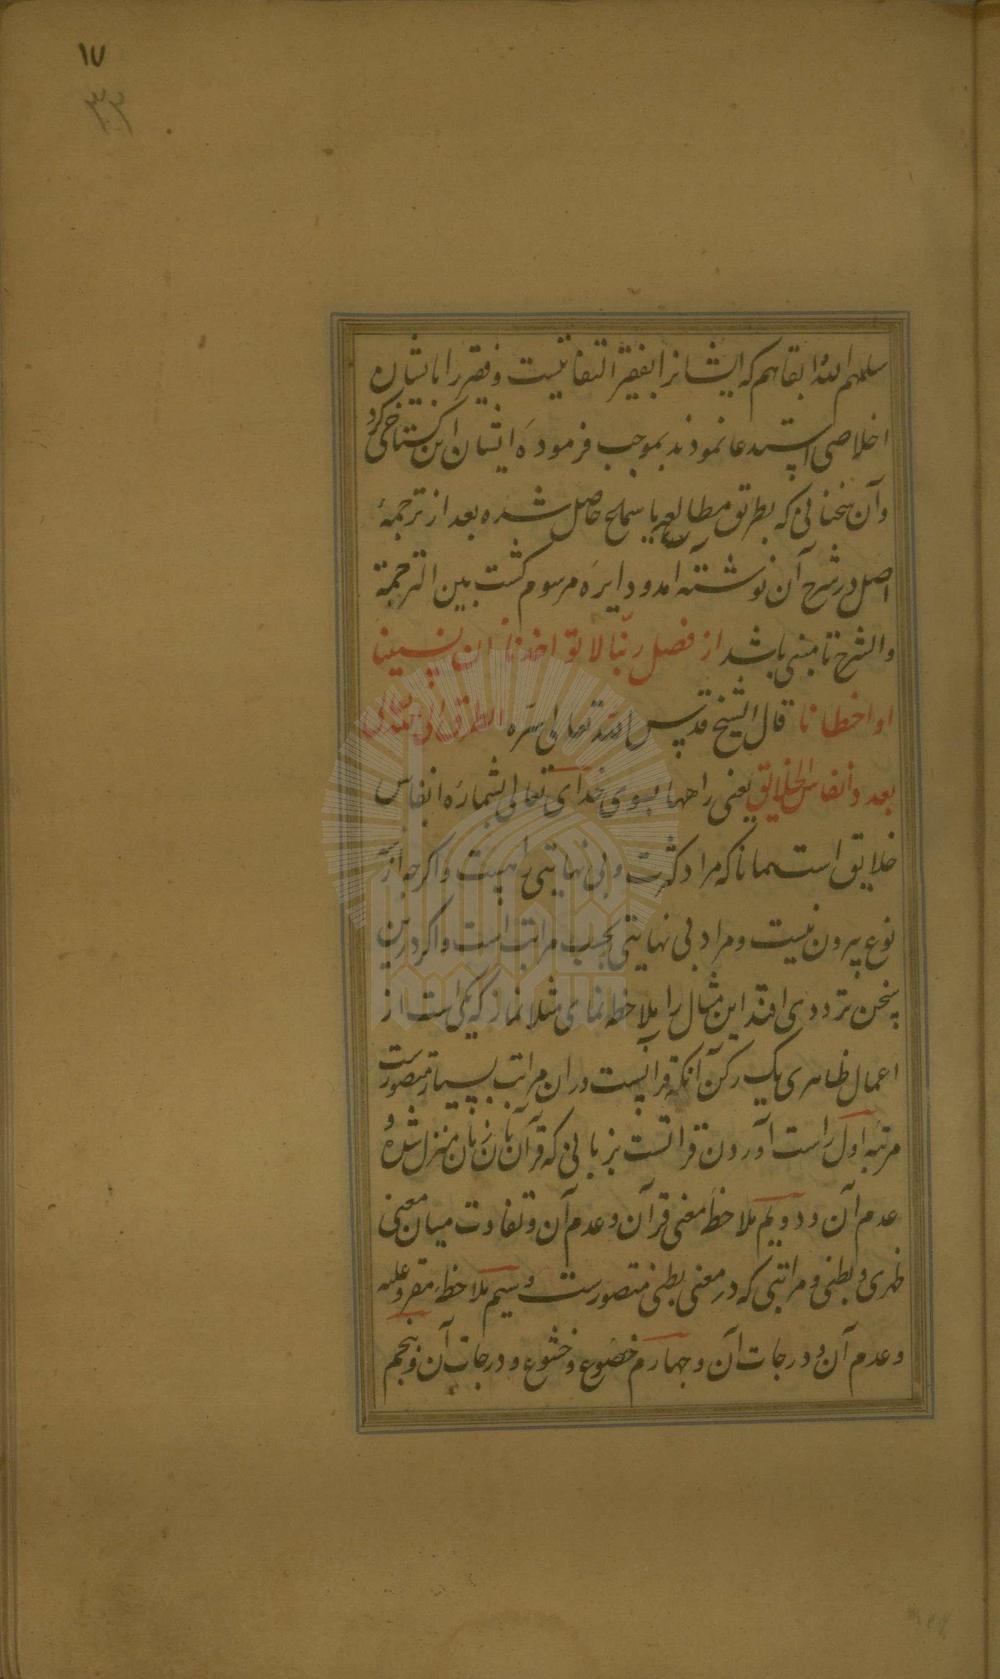 ۱۷
۳۳
سلمهم الله ابقاهم که ایشانرا بفقیر التفاتیست و فقیر را بایشان
اخلاصی استدعا نمودند بموجب فرموده ایشان این گستاخی کرد
و آن سخنانی که بطریق مطالعه یا سماع حاصل شده بعد از ترجمهٔ
اصل در شرح آن نوشته امد و دایره مرسوم گشت بین الترجمة
والشرح تا منبی باشد از فصل ربّنا لا تؤاخذنا ان نسینا
او اخطانا قال الشیخ قدس الله تعالی سره الطرق الی الله تعالی
بعدد انفاس الخلایق یعنی راهها بسوی خدای تعالی بشماره انفاس
خلایق است همانا که مراد کثرت و بی نهایتی راهست و اکرچه از سه
نوع بیرون نیست و مراد بی نهایتی بحسب مراتب است و اکر درین
سخن ترددی افتد این مثال را ملاحظه نمای مثلا نماز که یکی است از
اعمال ظاهری یک رکن آنکه قراتست و در ان مراتب بسیار متصورست
مرتبه اول راست آوردن قراتست بزبانی که قرآن بآن زبان منزل شده و
عدم آن و دویم ملاحظه معنی قرآن و عدم آن و تفاوت میان معنی
ظهری و بطنی و مراتبی که در معنی بطنی متصورست و سیم ملاحظه مقرو علیه
و عدم آن و درجات آن و چهارم خضوع و خشوع و درجات آن و پنجم